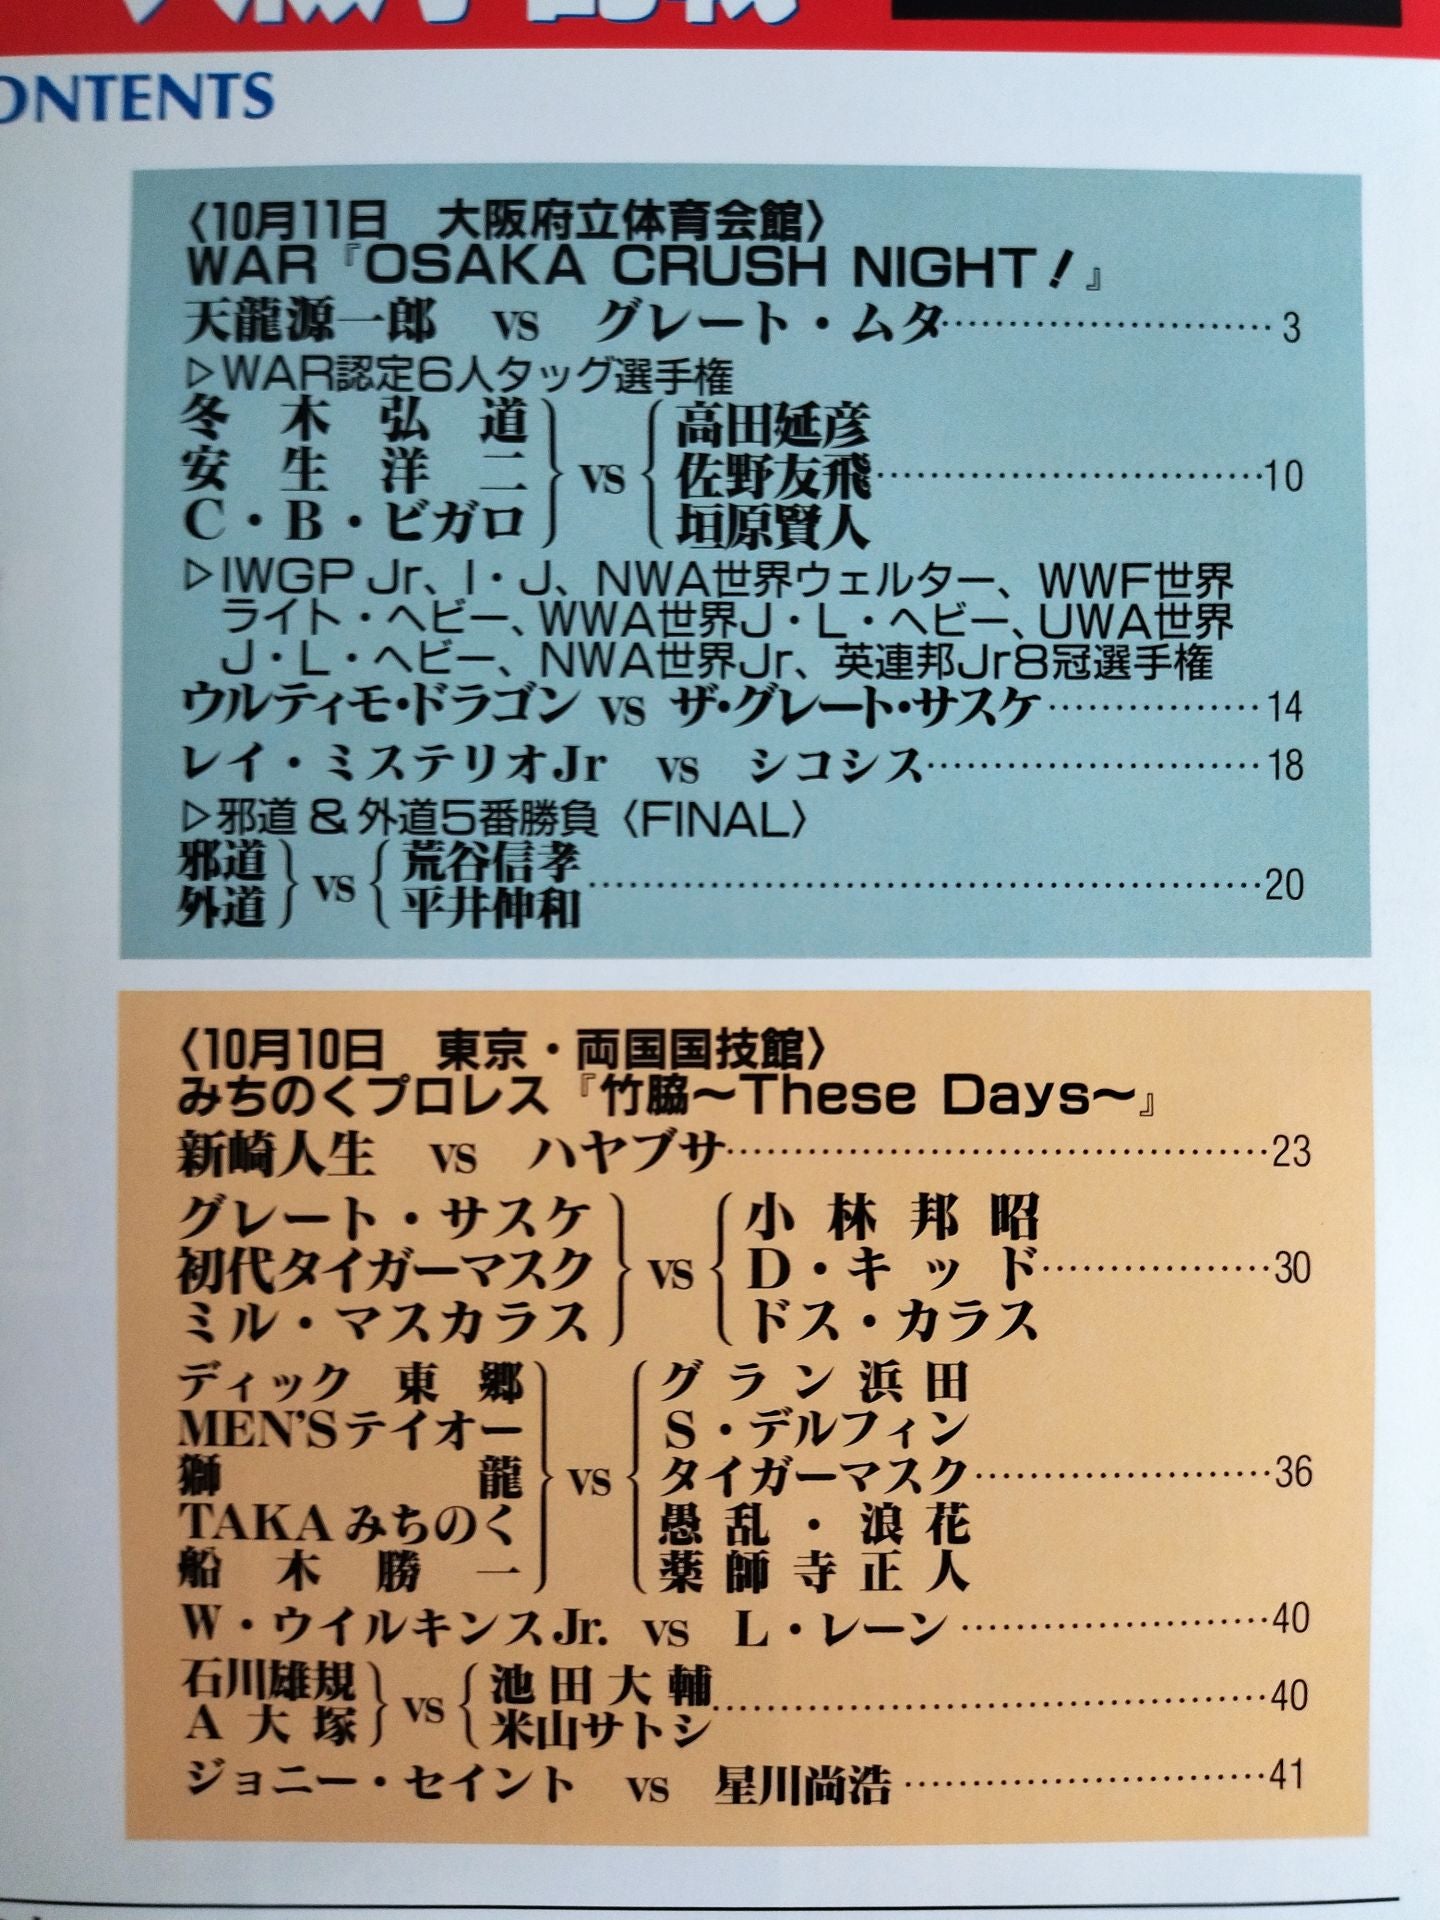 ONTENTS
〈10月11日　大阪府立体育会館〉
WAR『OSAKA CRUSH NIGHT!』
天龍源一郎　vs　グレート・ムタ……………………3
▷WAR認定6人タッグ選手権
冬木弘道
安生洋二
C・B・ビガロ
vs
高田延彦
佐野友飛……………………10
垣原賢人
▷IWGP Jr、I・J、NWA世界ウェルター、WWF世界
ライト・ヘビー、WWA世界J・L・ヘビー、UWA世界
J・L・ヘビー、NWA世界Jr、英連邦Jr8冠選手権
ウルティモ・ドラゴン vs ザ・グレート・サスケ……………14
レイ・ミステリオJr　vs　シコシス……………………18
▷邪道&外道5番勝負〈FINAL〉
邪道
外道
vs
荒谷信孝
平井伸和
……………………20
〈10月10日　東京・両国国技館〉
みちのくプロレス『竹脇〜These Days〜』
新崎人生　vs　ハヤブサ……………………23
グレート・サスケ
初代タイガーマスク
ミル・マスカラス
vs
小林邦昭
D・キッド……………30
ドス・カラス
ディック東郷
MEN'Sテイオー
獅龍
TAKAみちのく
船木勝一
vs
グラン浜田
S・デルフィン
タイガーマスク……………………36
愚乱・浪花
薬師寺正人
W・ウイルキンスJr. vs L・レーン……………………40
石川雄規
A大塚
vs
池田大輔
米山サトシ
……………………40
ジョニー・セイント　vs　星川尚浩……………………41